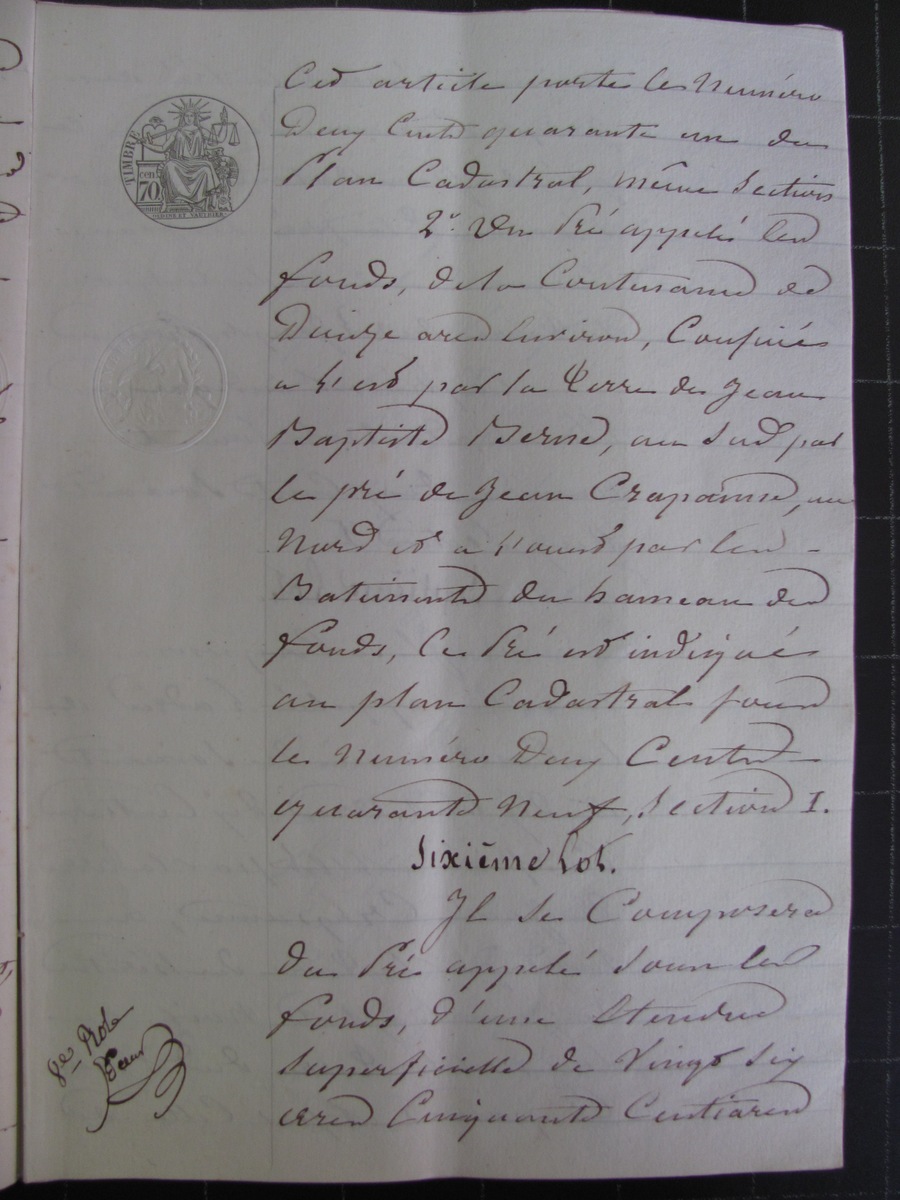 TIMBRE
cen.
70
Cet article porte le Numéro
Deux Cent quarante un du
Plan Cadastral, même Section
2° Du Pré appelé les
fonds, de la Contenance de
Douze ares Environ, Confiné
a l'est par la Terre de Jean
Baptiste Berne, au Sud par
le pré de Jean Crapanne, au
Nord et a l'ouest par les
Batiments du hameau des
fonds, Ce Pré est indiqué
au plan Cadastral sous
le Numéro Deux Cent
quarante Neuf, Section I.
Sixième Lot.
Il se Composera
du Pré appelé Sous les
fonds, d'une Etendue
superficielle de Vingt Six
ares Cinquante Centiares
8e Role